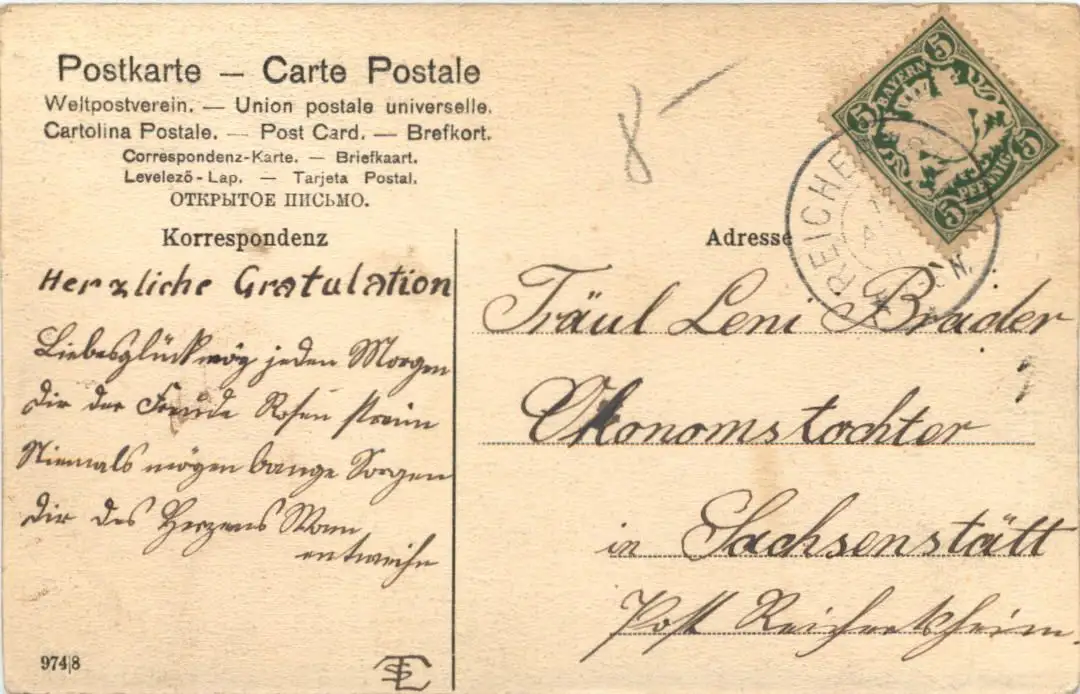 Postkarte — Carte Postale
Weltpostverein. — Union postale universelle.
Cartolina Postale. — Post Card. — Brefkort.
Correspondenz-Karte. — Briefkaart.
Levelező-Lap. — Tarjeta Postal.
ОТКРЫТОЕ ПИСЬМО.
Korrespondenz
Herzliche Gratulation
Liebesglück mög jeden Morgen
Dir der Freude Rosen streun
Niemals mögen bange Sorgen
Dir des Herzens Wonn
entweihn
974|8
8 —
5 BAYERN 5
5 PFENNIG 5
REICHE
Adresse
Fräul Leni Brader
Ökonomstochter
in Sachsenstätt
Post Reichertsheim.